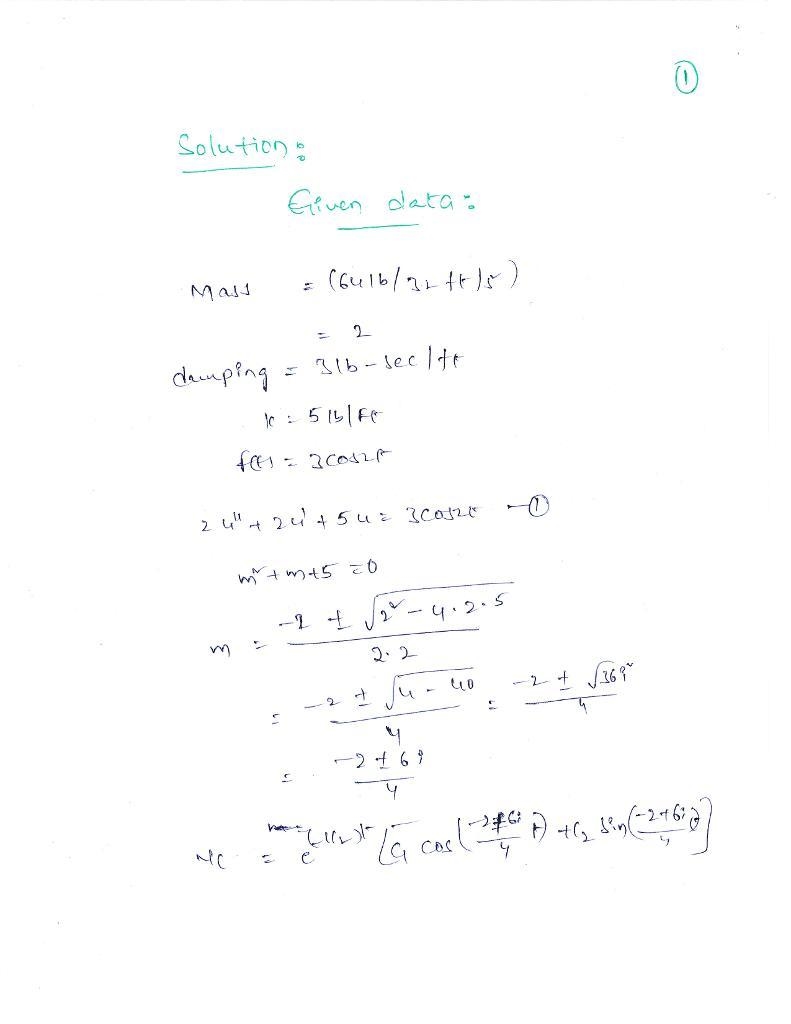 ①
Solution:
Given data:
Mass = (64 lb/32 ft/s²)
= 2
damping = 3lb-sec/ft
k = 5 lb/ft
f(t) = 3cos2t
2u'' + 2u' + 5u = 3cos2t —①
m² + m + 5 = 0
m = (-2 ± √(2² - 4·2·5)) / 2·2
= (-2 ± √(4 - 40)) / 4 = (-2 ± √(36i²)) / 4
= (-2 ± 6i) / 4
= e^((-1/2)t) [C₁ cos((-2+6i)/4 t) + C₂ sin((-2+6i)/4 t)]